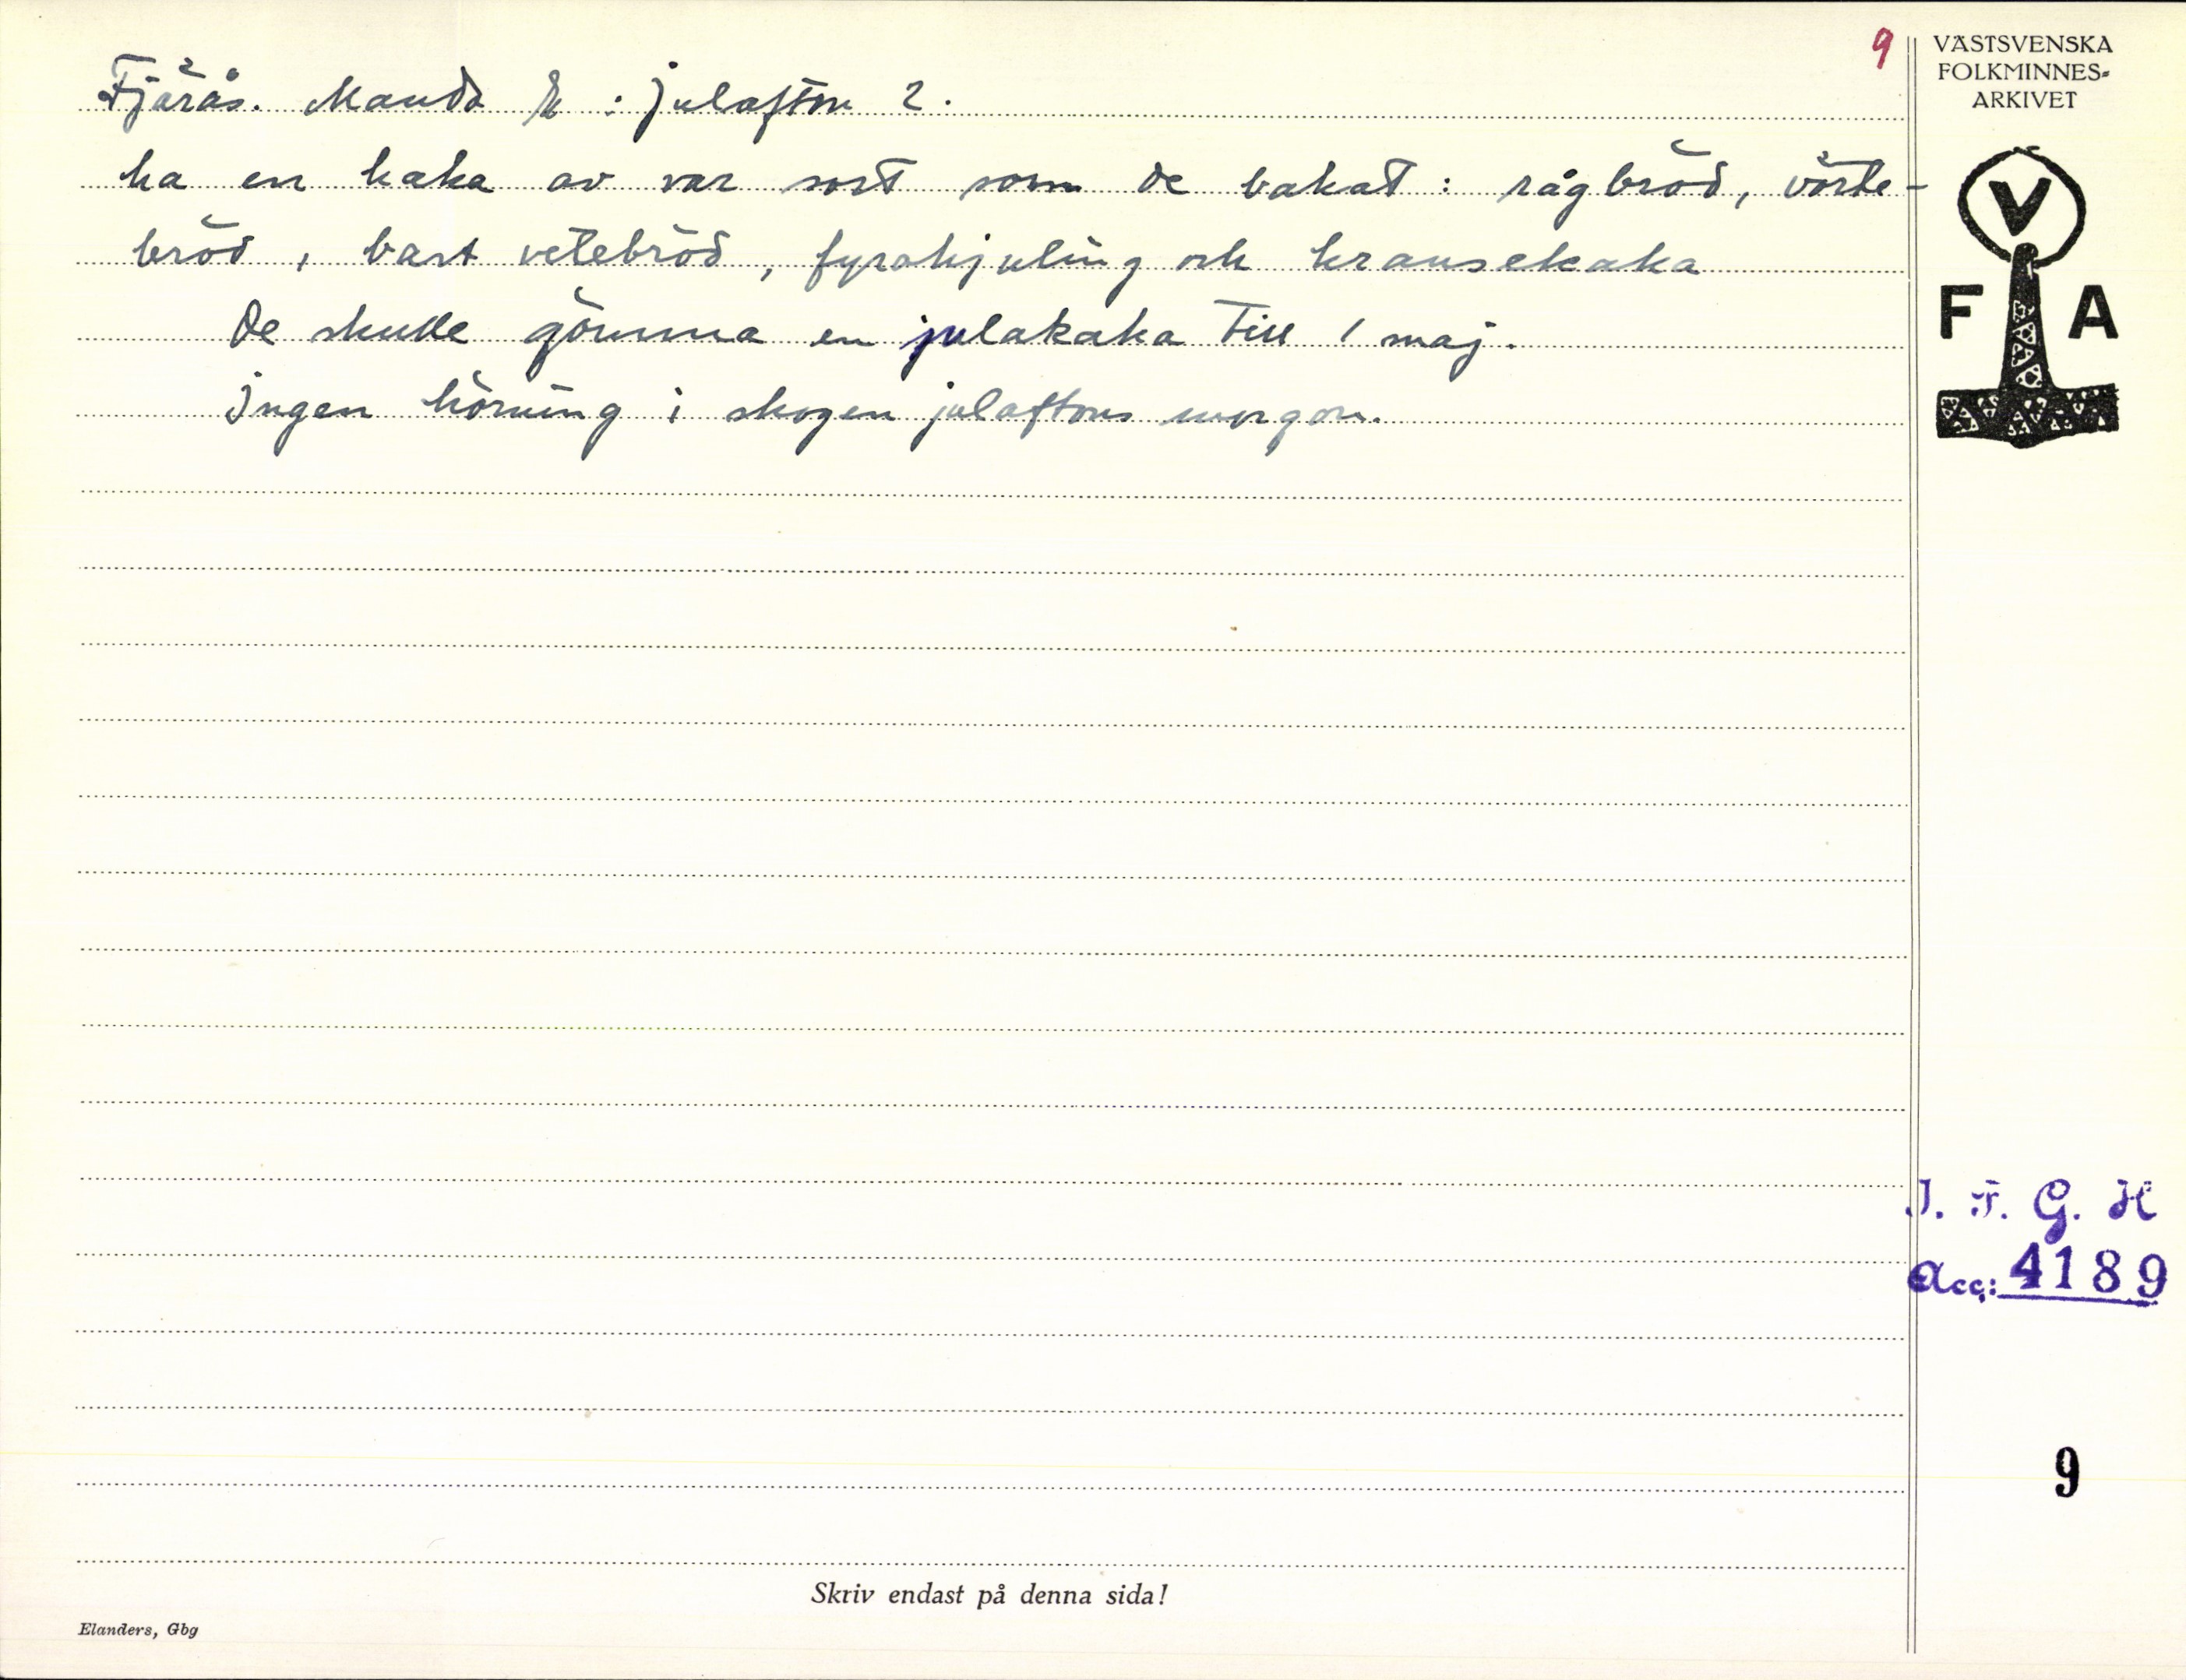 9
VÄSTSVENSKA
FOLKMINNES-
ARKIVET
V
F A
Fjärås. Manda E : julafton 2.
ha en kaka av var sort som de bakat: rågbröd, vörte-
bröd, bart vetebröd, fyrahjuling och kransekaka
De skulle gömma en julakaka till 1 maj.
Ingen körning i skogen julaftons morgon.
I. F. G. H
Acc: 4189
9
Skriv endast på denna sida!
Elanders, Gbg